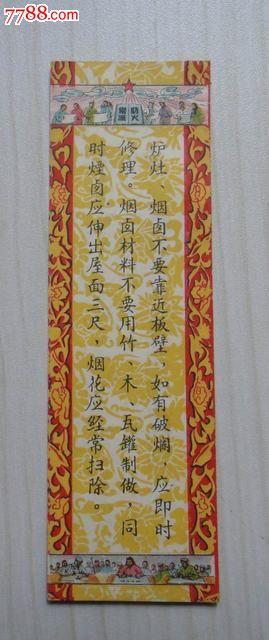 7788.com
防火
常識
炉灶、烟卤不要靠近板壁，如有破烂，应即时
修理。烟卤材料不要用竹、木、瓦罐制做，同
时烟卤应伸出屋面三尺，烟花应经常扫除。